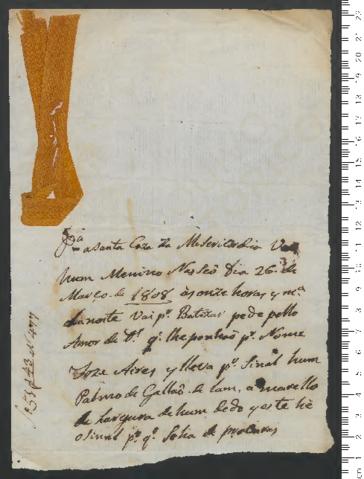 Pª a Santa Caza da Mizericordia Vai
hum Menino Nasseo Dia 26 de
Março de 1808 às onze horas y mª
da noite Vai pª Batizar pede pello
Amor de Dˢ qʳ lhe ponhão pʳ Nome
Joze Aires y lleva pʳ Sinal hum
Palmo de Gallão de lam, amarello
de Largura de hum dedo y este hé
o sinal pʳ qʳ Se ha de procurar